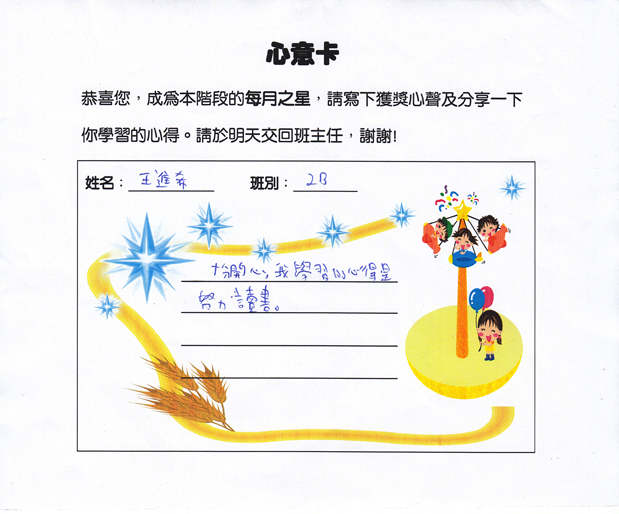 心意卡
恭喜您，成為本階段的每月之星，請寫下獲獎心聲及分享一下
你學習的心得。請於明天交回班主任，謝謝!
姓名：王進希 班別：2B
十分開心，我學習的心得是
努力讀書。